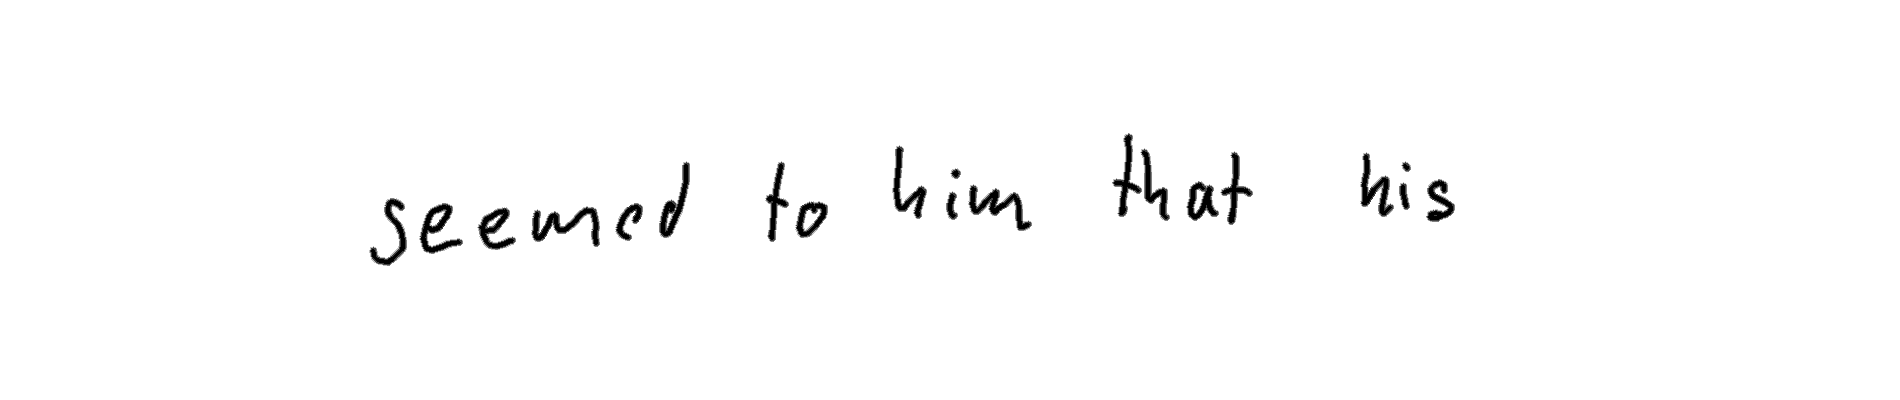 seemed to him that his